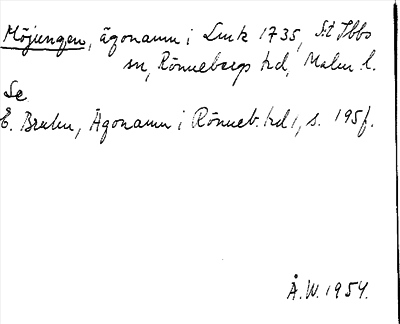 Möjungen, ägonamn i Lmk 1735, S:t Ibbs
sn, Rönnebergs hd, Malm. l.
Se
E. Bruhn, Ägonamn i Rönneb. hd 1, s. 195f.
Å. W. 1954.